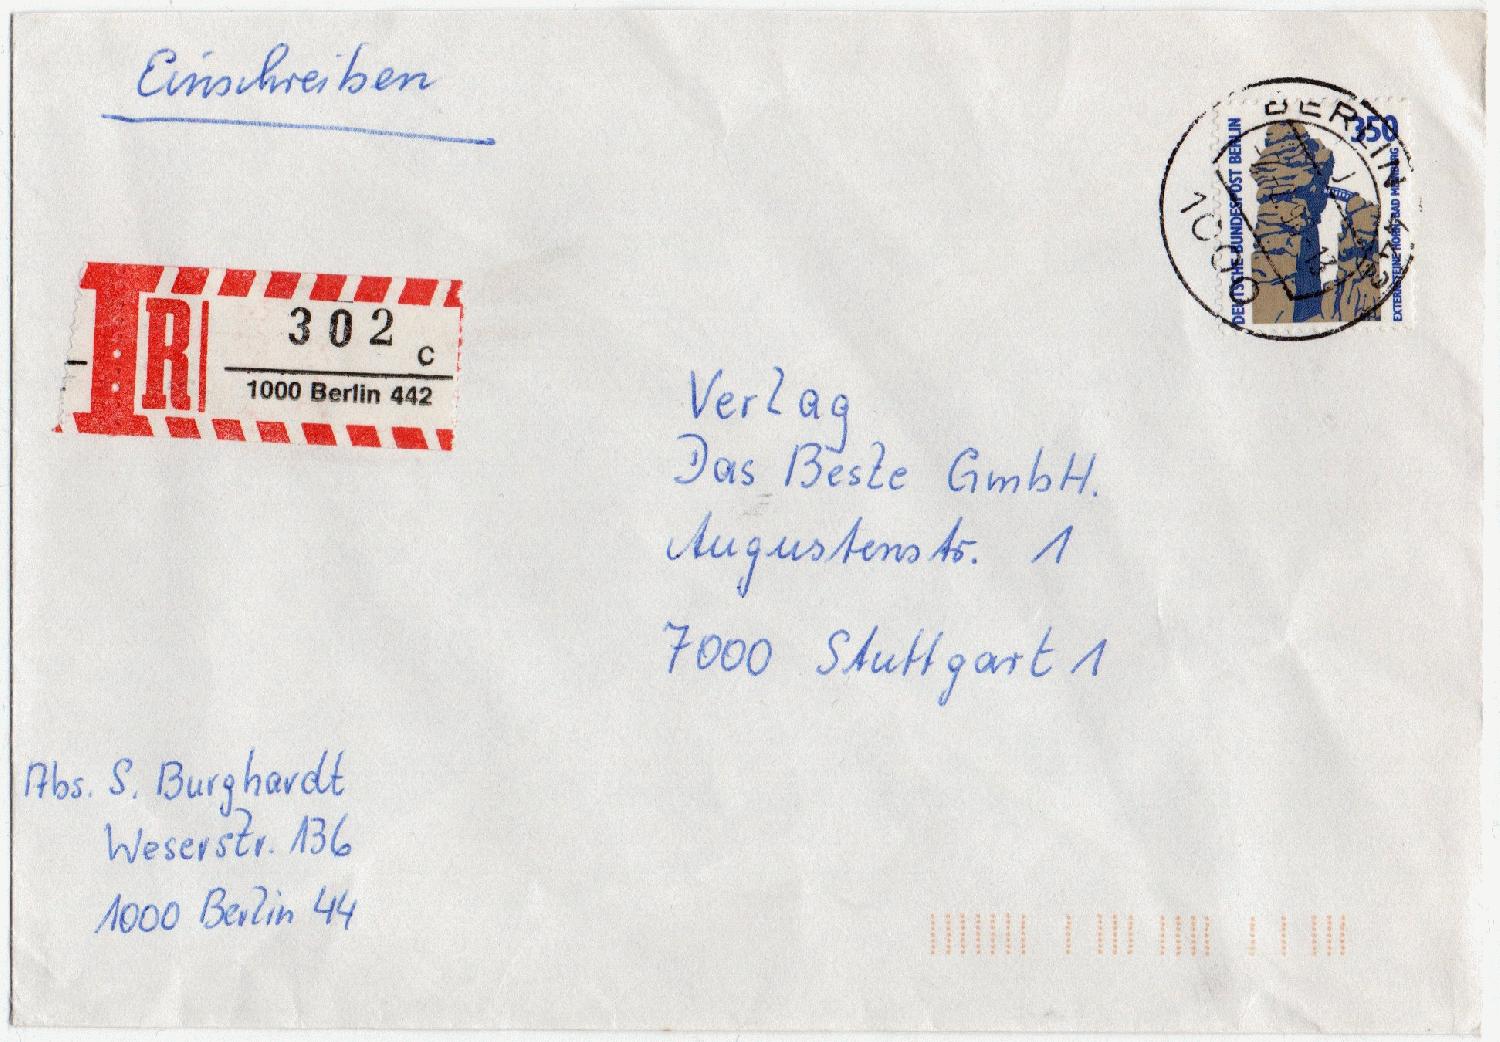 Einschreiben
BERLIN 44
1000
350
DEUTSCHE BUNDESPOST BERLIN
EXTERNSTEINE HORN-BAD MEINBERG
R
302
c
1000 Berlin 442
Verlag
Das Beste GmbH.
Augustenstr. 1
7000 Stuttgart 1
Abs. S. Burghardt
Weserstr. 136
1000 Berlin 44